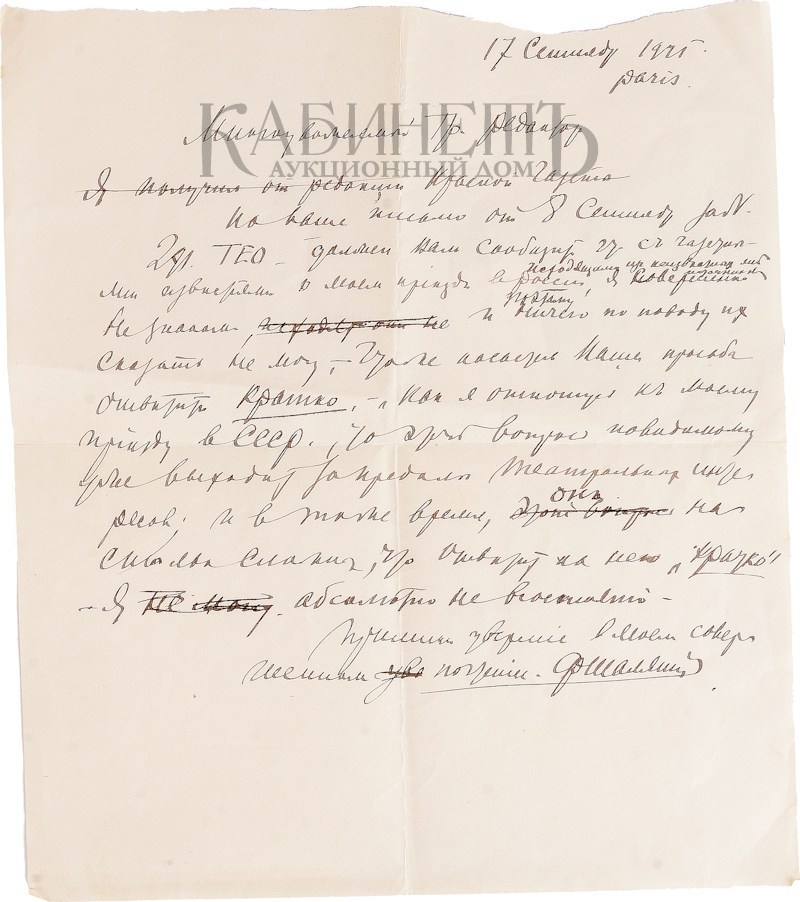 17 Сентября 1925.
Paris.
КАБИНЕТЪ
АУКЦИОННЫЙ ДОМ
Многоуважаемый Гр. Редактор
Я получил от редакции Красной Газеты
На ваше письмо от 8 Сентября за №.
ТЕО – должен Вам сообщить что с газетны-
ми известиями о моем приезде в Россию, я совершенно
не знаком, и поэтому ничего по поводу их
сказать не могу, – Что же касается Вашей просьбы
ответить кратко, – „Как я отношусь к моему
приезду в СССР.", то этот вопрос повидимому
уже выходит за пределы театральных инте
ресов; и в то же время, он на
столько сложен, что ответить на него „кратко"
– Я не могу абсолютно не в состоянии –
Примите уверение в моем совер
шенном почтении. ФШаляпин